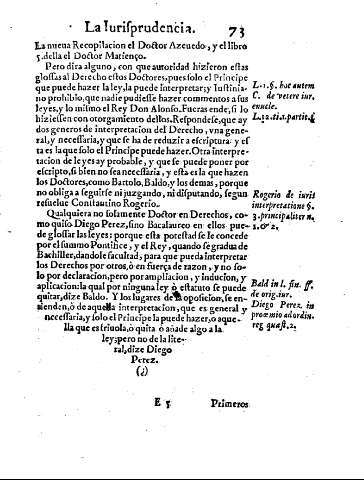 La Iurisprudencia. 73
La nueva Recopilacion el Doctor Azeuedo, y el libro
5. della el Doctor Matienço.
Pero dira alguno, con que autoridad hizieron estas
glossas al Derecho estos Doctores, pues solo el Principe
que puede hazer la ley, la puede interpretar; y Iustinia-
no prohibio, que nadie pudiesse hazer commentos a sus
leyes, y lo mismo el Rey Don Alonso. Fueras ende, si lo
hiziessen con otorgamiento dellos. Respondese, que ay
dos generos de interpretacion del Derecho, vna gene-
ral, y necessaria, y que se ha de reduzir a escriptura: y es
ta es la que solo el Principe puede hazer. Otra interpre-
tacion de leyes ay probable, y que se puede poner por
escripto, si bien no sea necessaria, y esta es la que hazen
los Doctores, como Bartolo, Baldo, y los demas, porque
no obliga a seguirse ni juzgando, ni disputando, segun
resuelue Constautino Rogerio.
Qualquiera no solamente Doctor en Derechos, co-
mo quiso Diego Perez, sino Bacalaureo en ellos pue-
de glossar las leyes: porque esta potestad se le concede
por el summo Pontifice, y el Rey, quando se gradua de
Bachiller, dandole facultad, para que pueda interpretar
los Derechos por otros, ò en fuerça de razon, y no so-
lo por declaracion, pero por ampliacion, y induciou, y
aplicacion: la qual por ninguna ley ò estatuto se puede
quitar, dize Baldo. Y los lugares de la oposicion, se en-
tienden, ò de aquella interpretacion, que es general y
necessaria, y solo el Principe la puede hazer, o aque-
lla que es friuola, ò quita ò añade algo a la
ley; pero no de la lite-
ral, dize Diego
Perez.
(¿)
L. 1. §. hoc autem
C. de vetere iur.
enucle.
L. 12. ti. 1. parti. 1
Rogerio de iuris
interpretatione §.
3. principaliter n.
1. & 2.
Bald in l. fin. ff.
de orig. iur.
Diego Perez. in
proœmio ad ordin.
reg quæst. 2.
E 5 Primeros